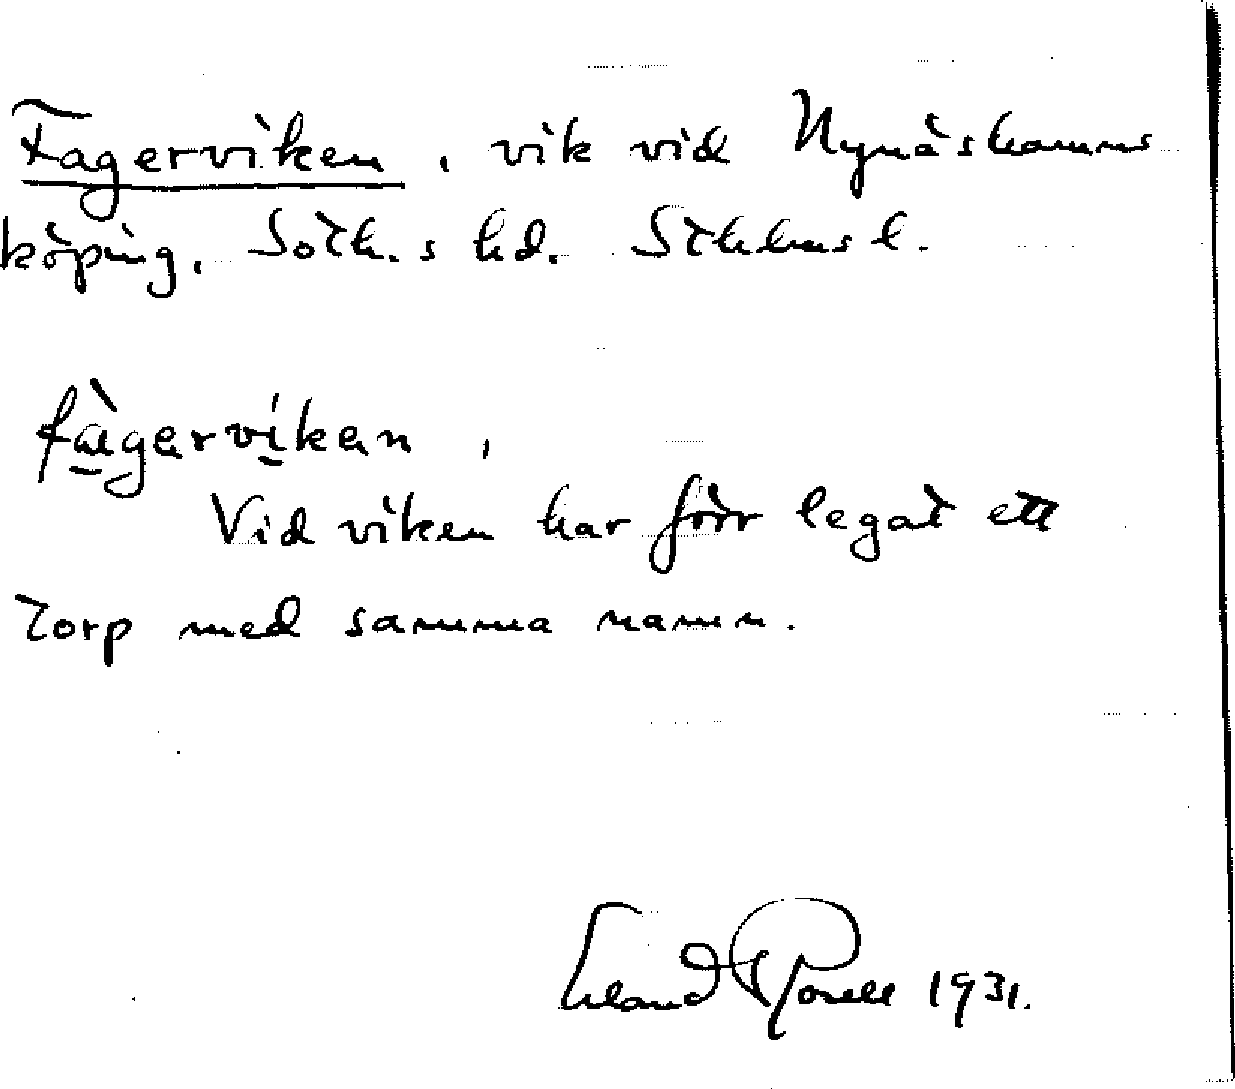 Fagerviken, vik vid Nynäshamns
köping, Soth.s hd. Sthlms l.
fàgervikən,
Vid viken har förr legat ett
torp med samma namn.
Erland Rosell 1931.